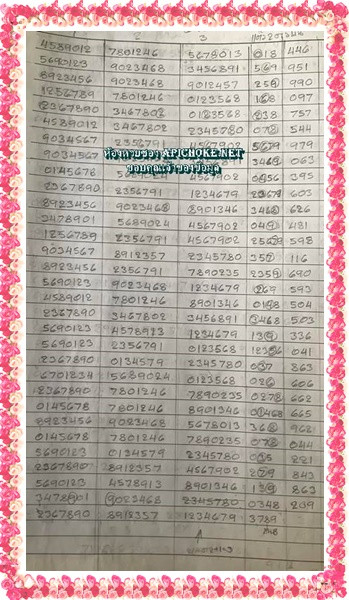 1 2 3
4589012 7801246 5678013 018 446
5690123 9023468 3456891 569 951
8923456 9023468 9012457 259 990
1256789 7801246 0123568 168 097
2367890 3467802 0123568 238 757
4589012 3467802 2345780 078 544
9034567 2356791 4567902 979
ห้องถามของ APICHOKE.NET
9034567 063
ขอบคุณเจ้าของข้อมูล
0145678 4567902 395
2367890 2356791 1234679 603
8923456 9023468 8901346 3468 626
3478901 5689024 4567902 049 481
1256789 2356791 4567902 2569 598
9034567 8912357 2345780 357 116
8923456 2356791 7890235 2359 690
5690123 9023468 1234679 269 593
4589012 7801246 8901346 0138 504
2367890 3467802 3456891 3468 503
5690123 4578913 1234679 139 336
5690123 2356791 0123568 041
2367890 0134579 2345780 037 863
6701234 5689024 0123568 026 606
2367890 7801246 7890235 0278 662
0145678 7801246 8901346 01468 665
8923456 9023468 5678013 368 962
0145678 7801246 7890235 078 044
5690123 0134579 2345780 221
2367890 8912357 4567902 279 843
5690123 4578913 8901346 139 863
3478901 9023468 2345780 0348 209
2367890 8912357 1234679 3789